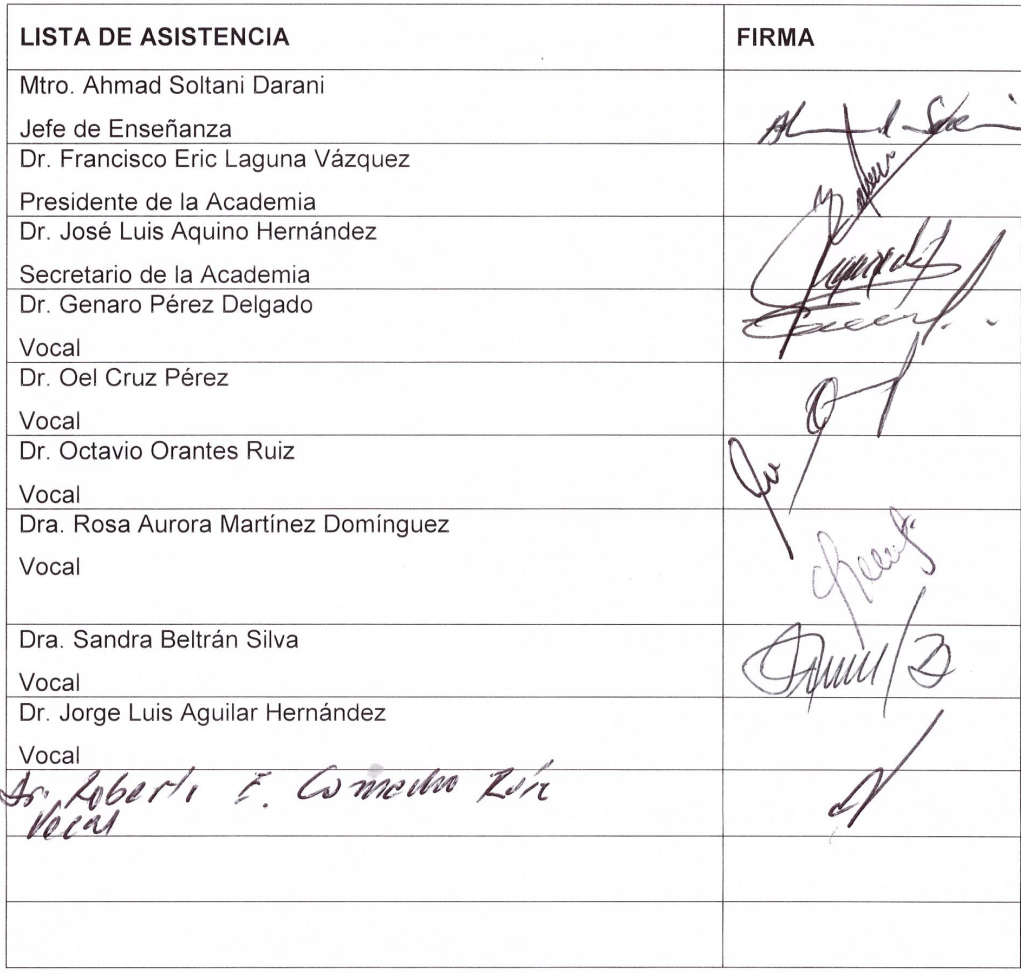 LISTA DE ASISTENCIA FIRMA
Mtro. Ahmad Soltani Darani
Jefe de Enseñanza
Dr. Francisco Eric Laguna Vázquez
Presidente de la Academia
Dr. José Luis Aquino Hernández
Secretario de la Academia
Dr. Genaro Pérez Delgado
Vocal
Dr. Oel Cruz Pérez
Vocal
Dr. Octavio Orantes Ruiz
Vocal
Dra. Rosa Aurora Martínez Domínguez
Vocal
Dra. Sandra Beltrán Silva
Vocal
Dr. Jorge Luis Aguilar Hernández
Vocal
Dr. Roberto E. Camacho
Vocal